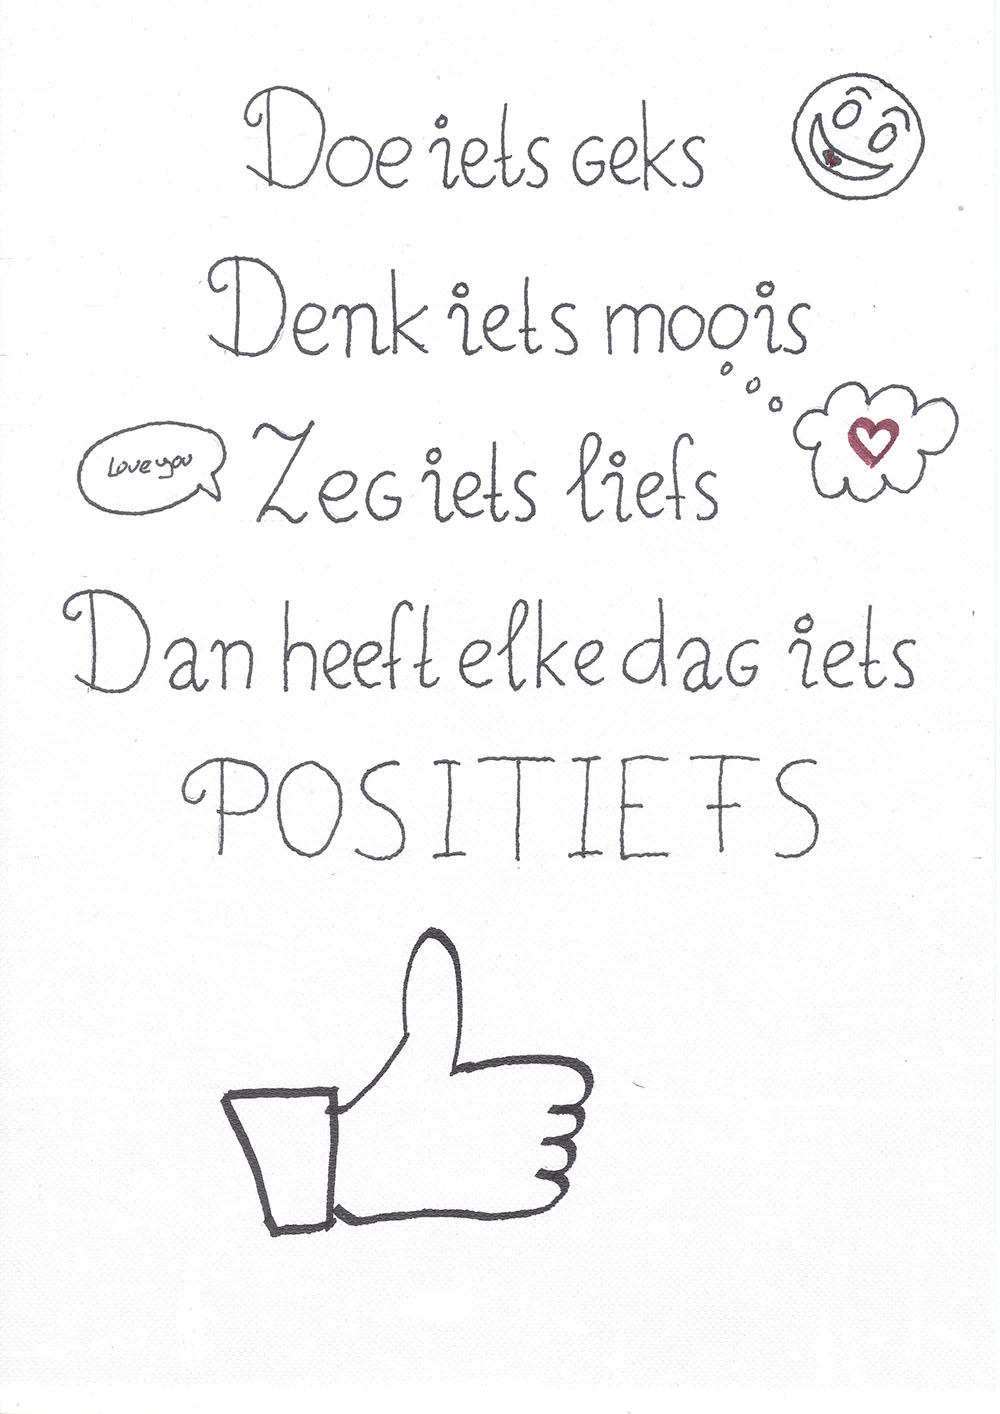 Doe iets geks
Denk iets moois
Love you
Zeg iets liefs
Dan heeft elke dag iets
POSITIEFS